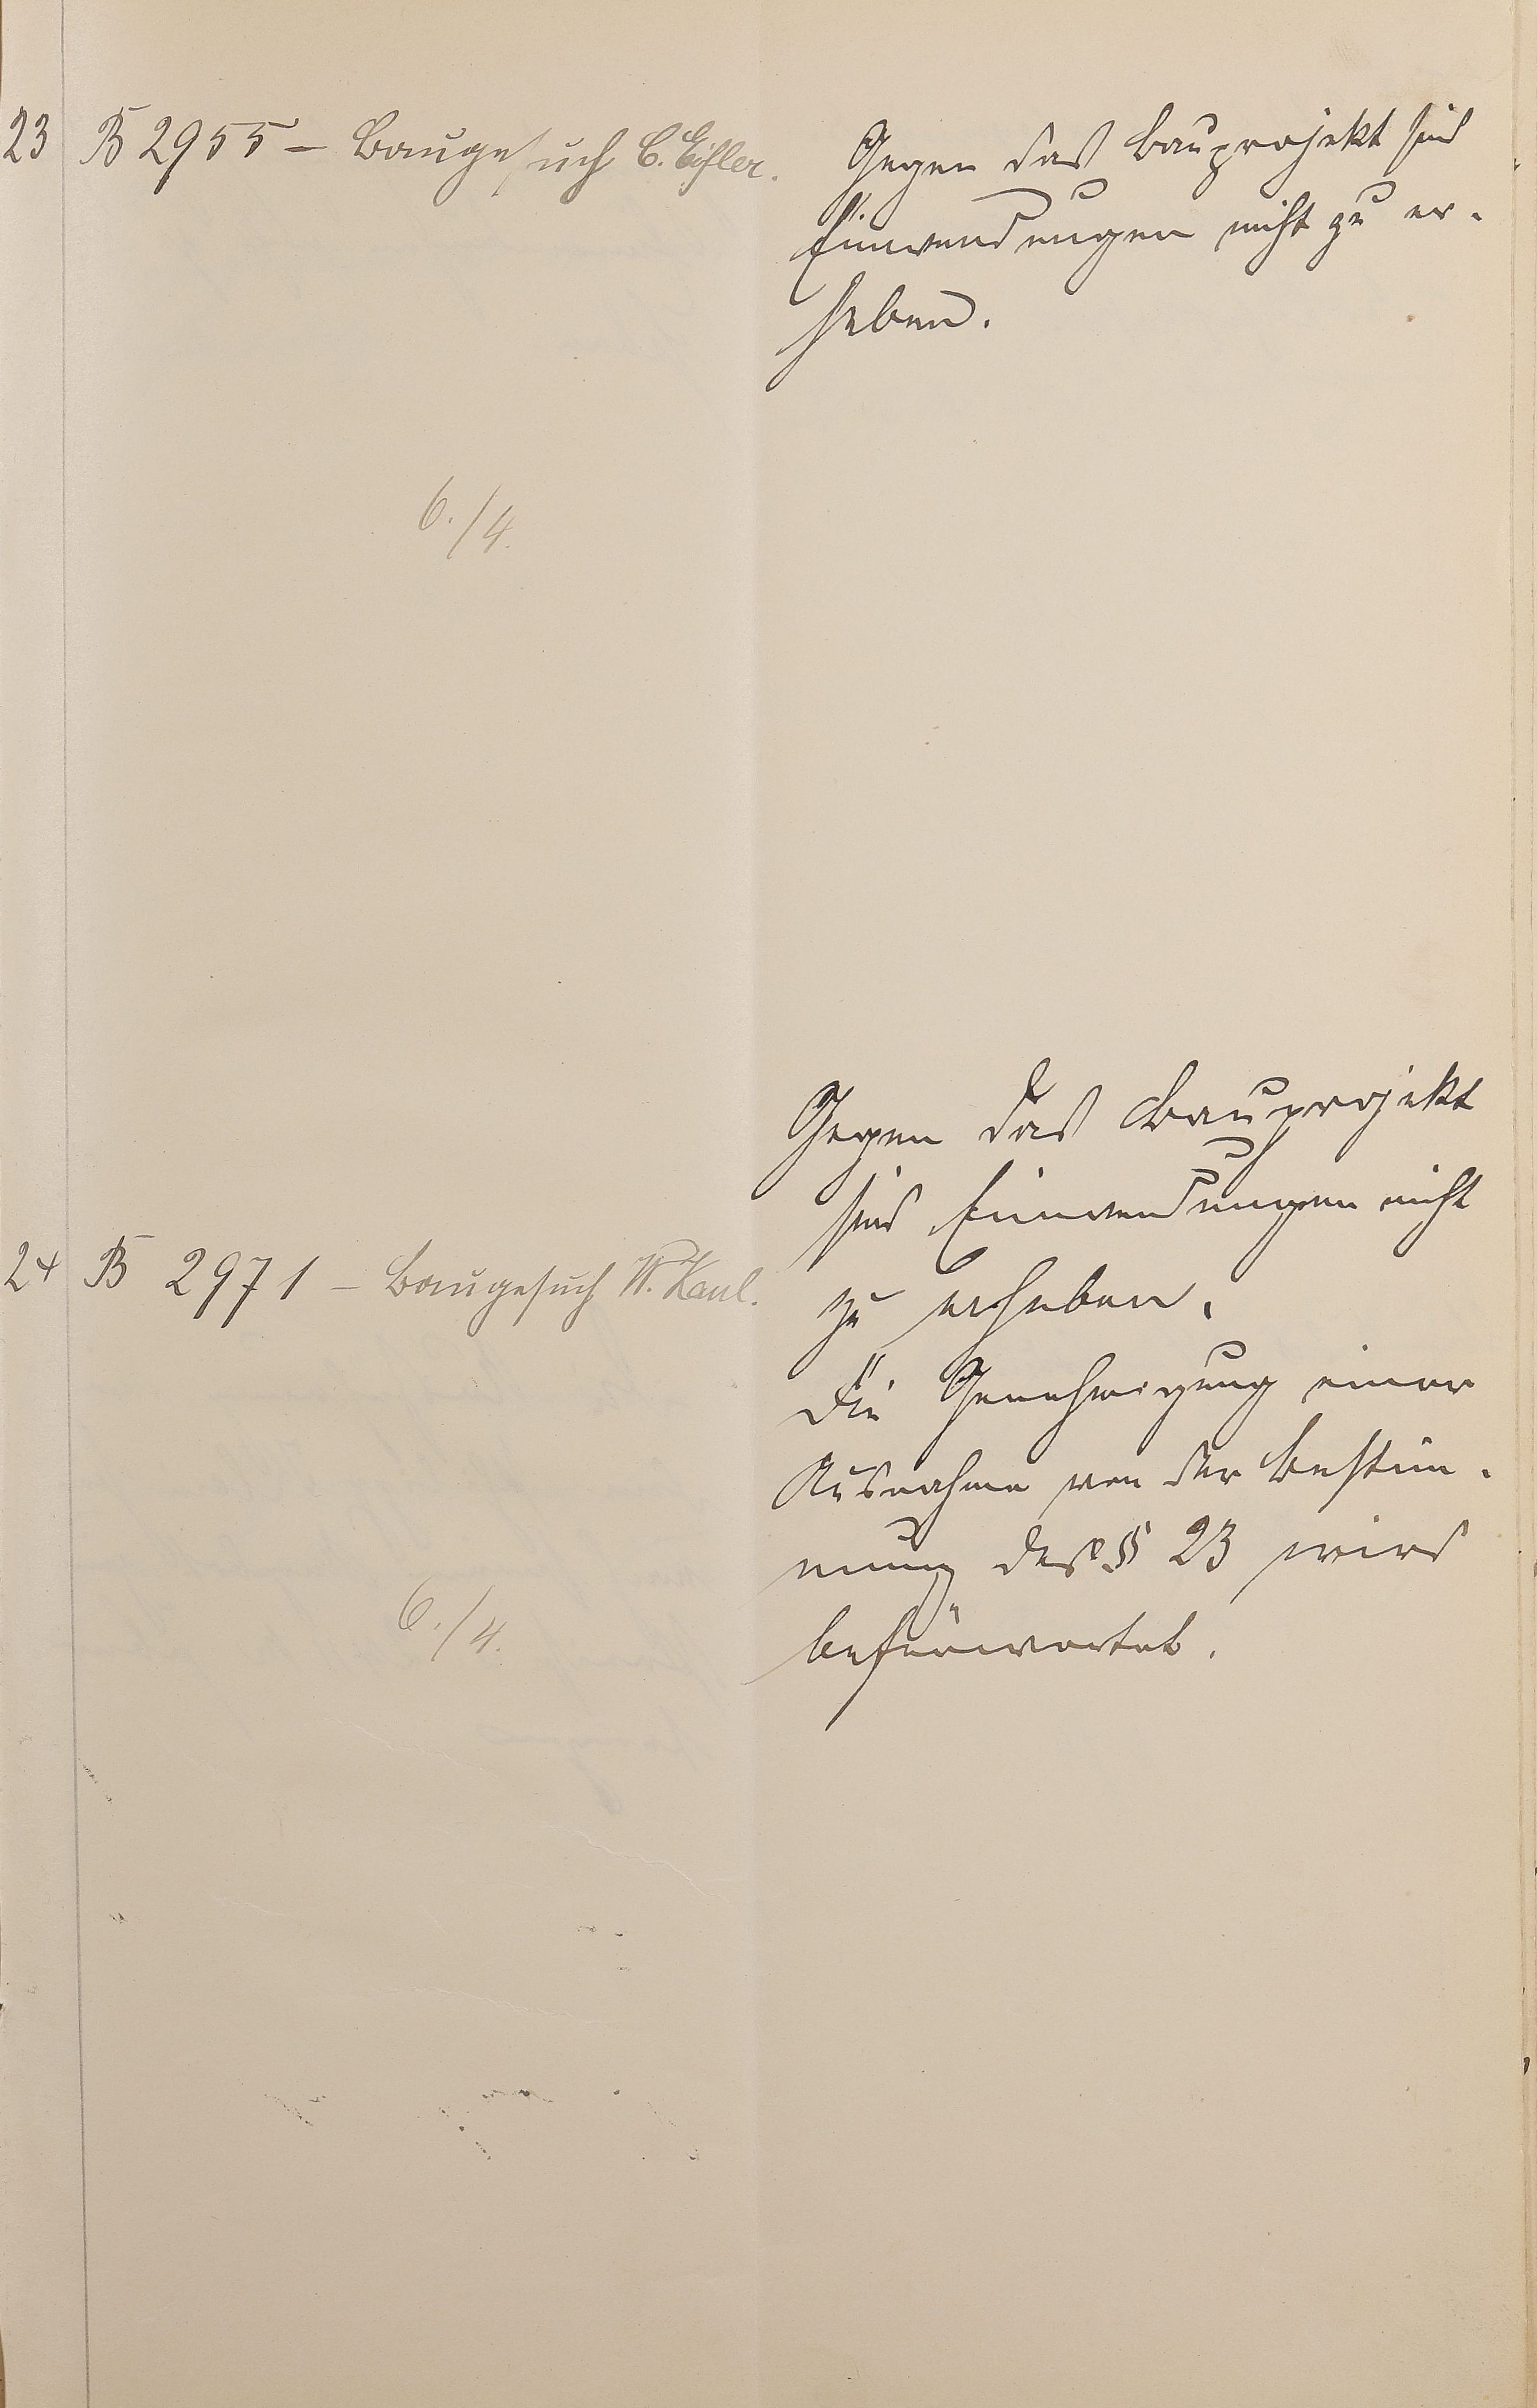 23 B 2955 – Baugesuch C. Eichler.
Gegen das Bauprojekt sind
Einwendungen nicht zu er-
heben.
6./4.
24 B 2971 – Baugesuch W. Kaul.
Gegen das Bauprojekt
sind Einwendungen nicht
zu erheben.
Die Genehmigung einer
Ausnahme von der Bestim-
mung des § 23 wird
befürwortet.
6./4.